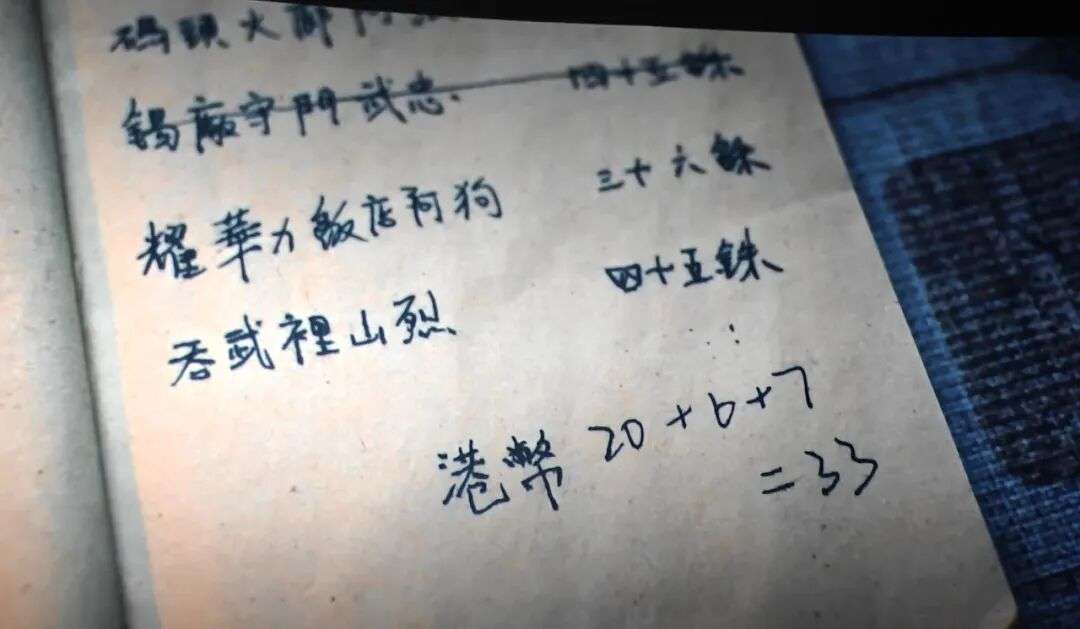 碼頭火
錫廠守門武忠 四十五銖
耀華力飯店阿狗 三十六銖
吞武裡山烈 四十五銖
港幣 20+6+7
=33